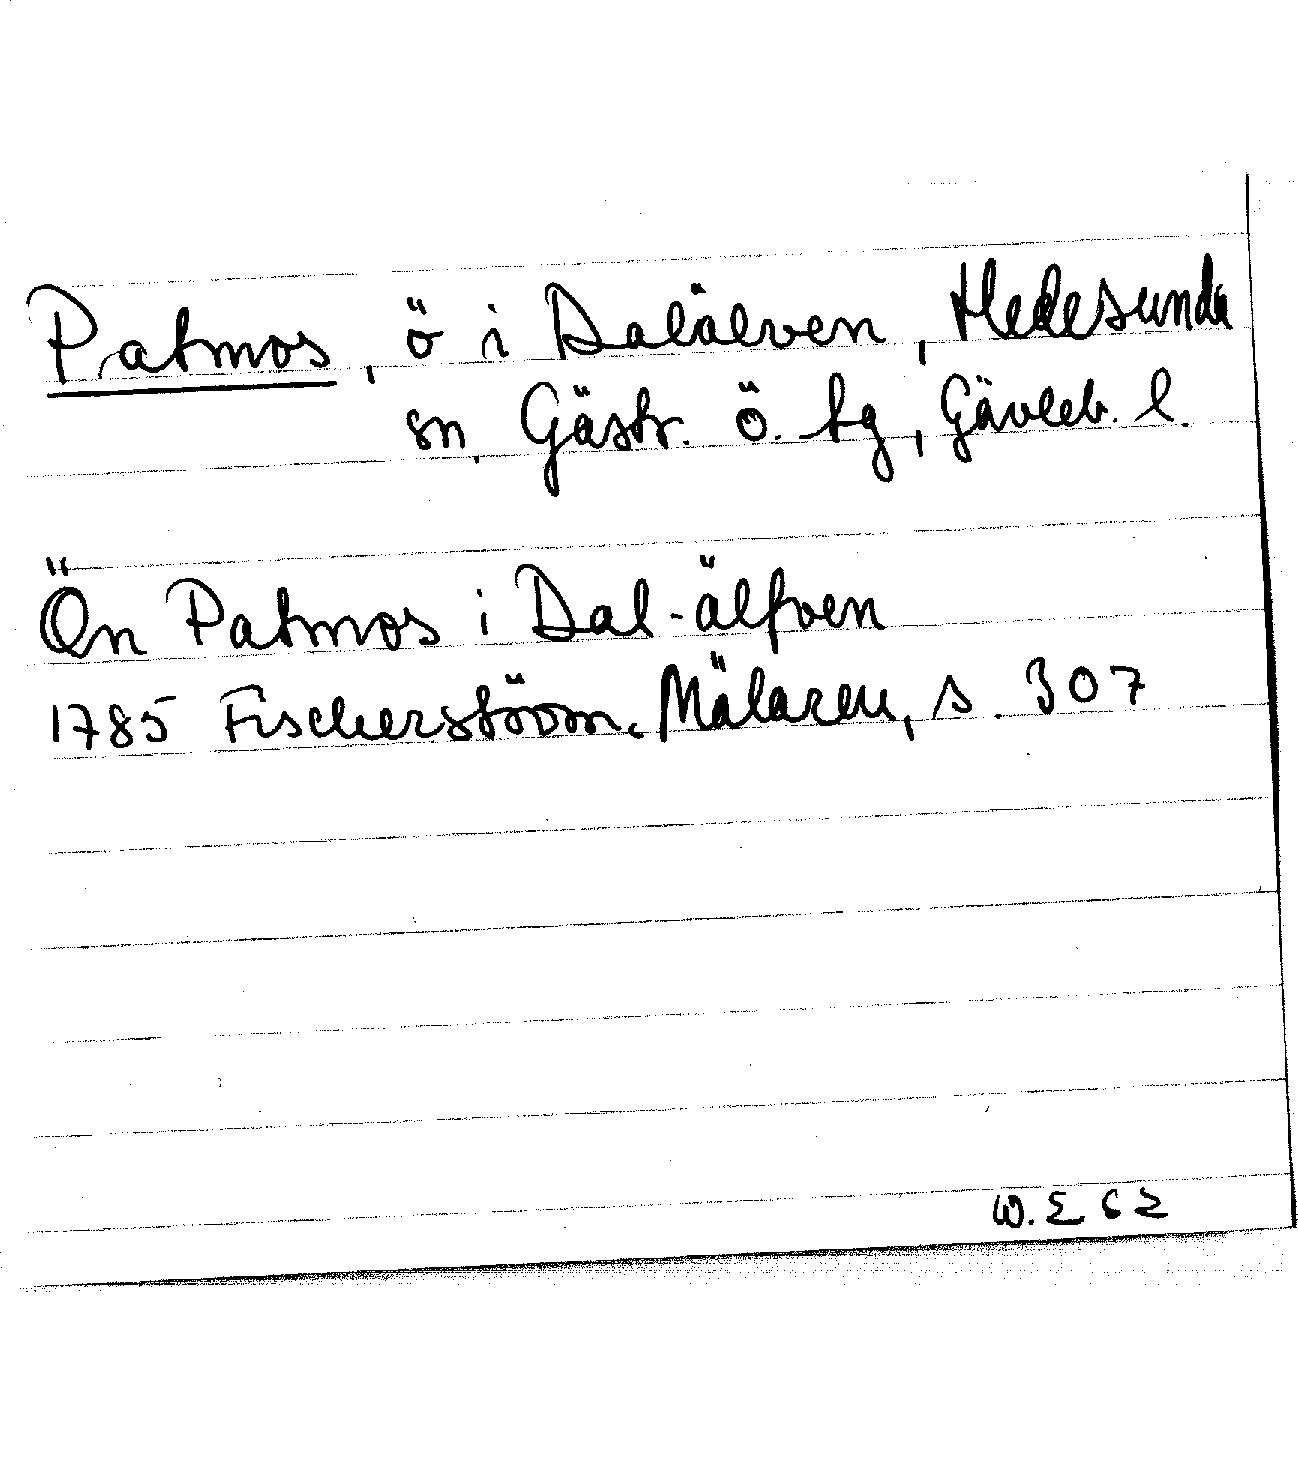 Patmos, ö i Dalälven, Hedesunda
sn, Gästr. ö. tg, Gävleb. l.
Ön Patmos i Dal-älfven
1785 Fischerström. Mälaren, s. 307
W. E 62